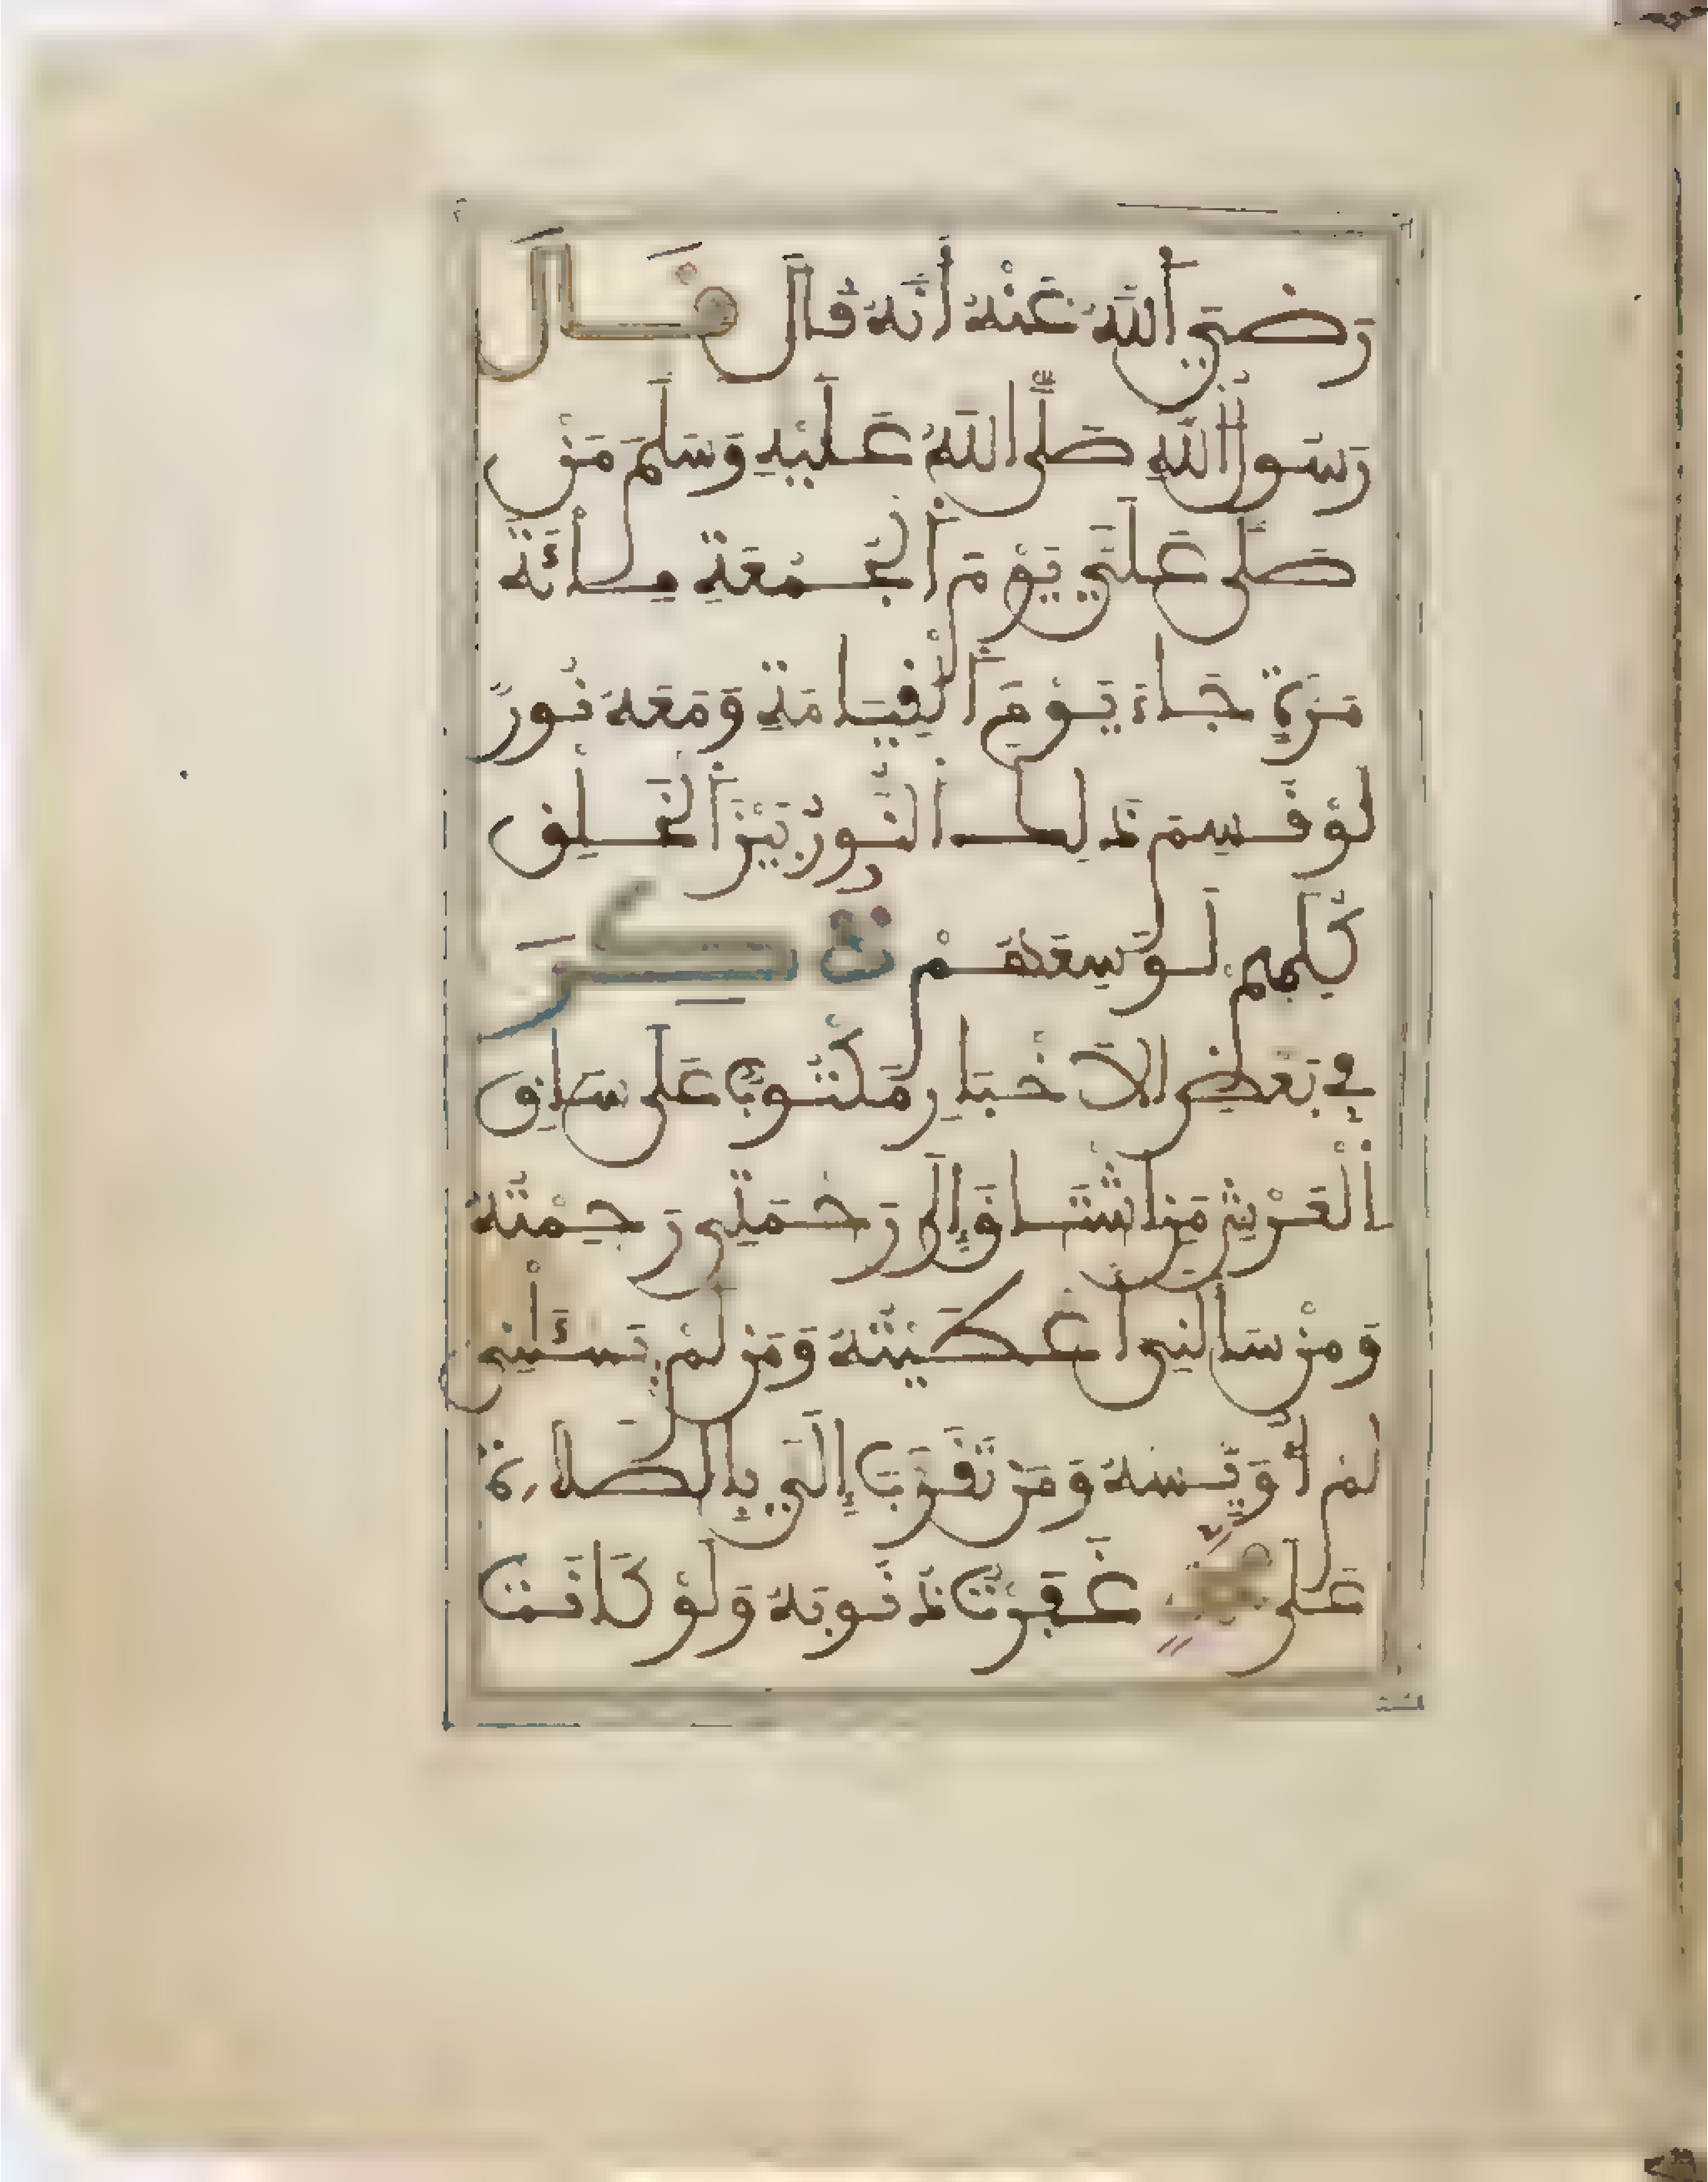 رَضِيَ اللَّهُ عَنْهُ أَنَّهُ قَالَ قَالَ
رَسُولُ اللَّهِ صَلَّى اللَّهُ عَلَيْهِ وَسَلَّمَ مَنْ
صَلَّى عَلَيَّ يَوْمَ الْجُمُعَةِ مِائَةَ
مَرَّةٍ جَاءَ يَوْمَ الْقِيَامَةِ وَمَعَهُ نُورٌ
لَوْ قُسِمَ ذَلِكَ النُّورُ بَيْنَ الْخَلْقِ
كُلِّهِمْ لَوَسِعَهُمْ ذُكِرَ
فِي بَعْضِ الْأَخْبَارِ مَكْتُوبٌ عَلَى سَاقِ
الْعَرْشِ مَنِ اشْتَاقَ إِلَى رَحْمَتِي رَحِمْتُهُ
وَمَنْ سَأَلَنِي أَعْطَيْتُهُ وَمَنْ لَمْ يَسْئَلْنِي
لَمْ أُويِسْهُ وَمَنْ تَقَرَّبَ إِلَيَّ بِالصَّلَاةِ
عَلَى مُحَمَّدٍ غَفَرْتُ ذُنُوبَهُ وَلَوْ كَانَتْ